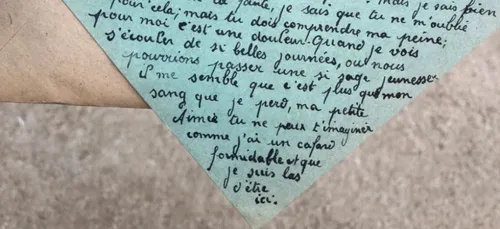 la faute, je sais que tu ne m'oublie
pour cela; mais tu dois comprendre ma peine;
pour moi c'est une douleur. Quand je vois
s'écouler de si belles journées, ou nous
pourrions passer une si jeunesse
il me semble que c'est plus que mon
sang que je perd, ma petite
Aimée tu ne peux t'imaginer
comme j'ai un cafard
formidable et que
je suis las
d'être
ici.